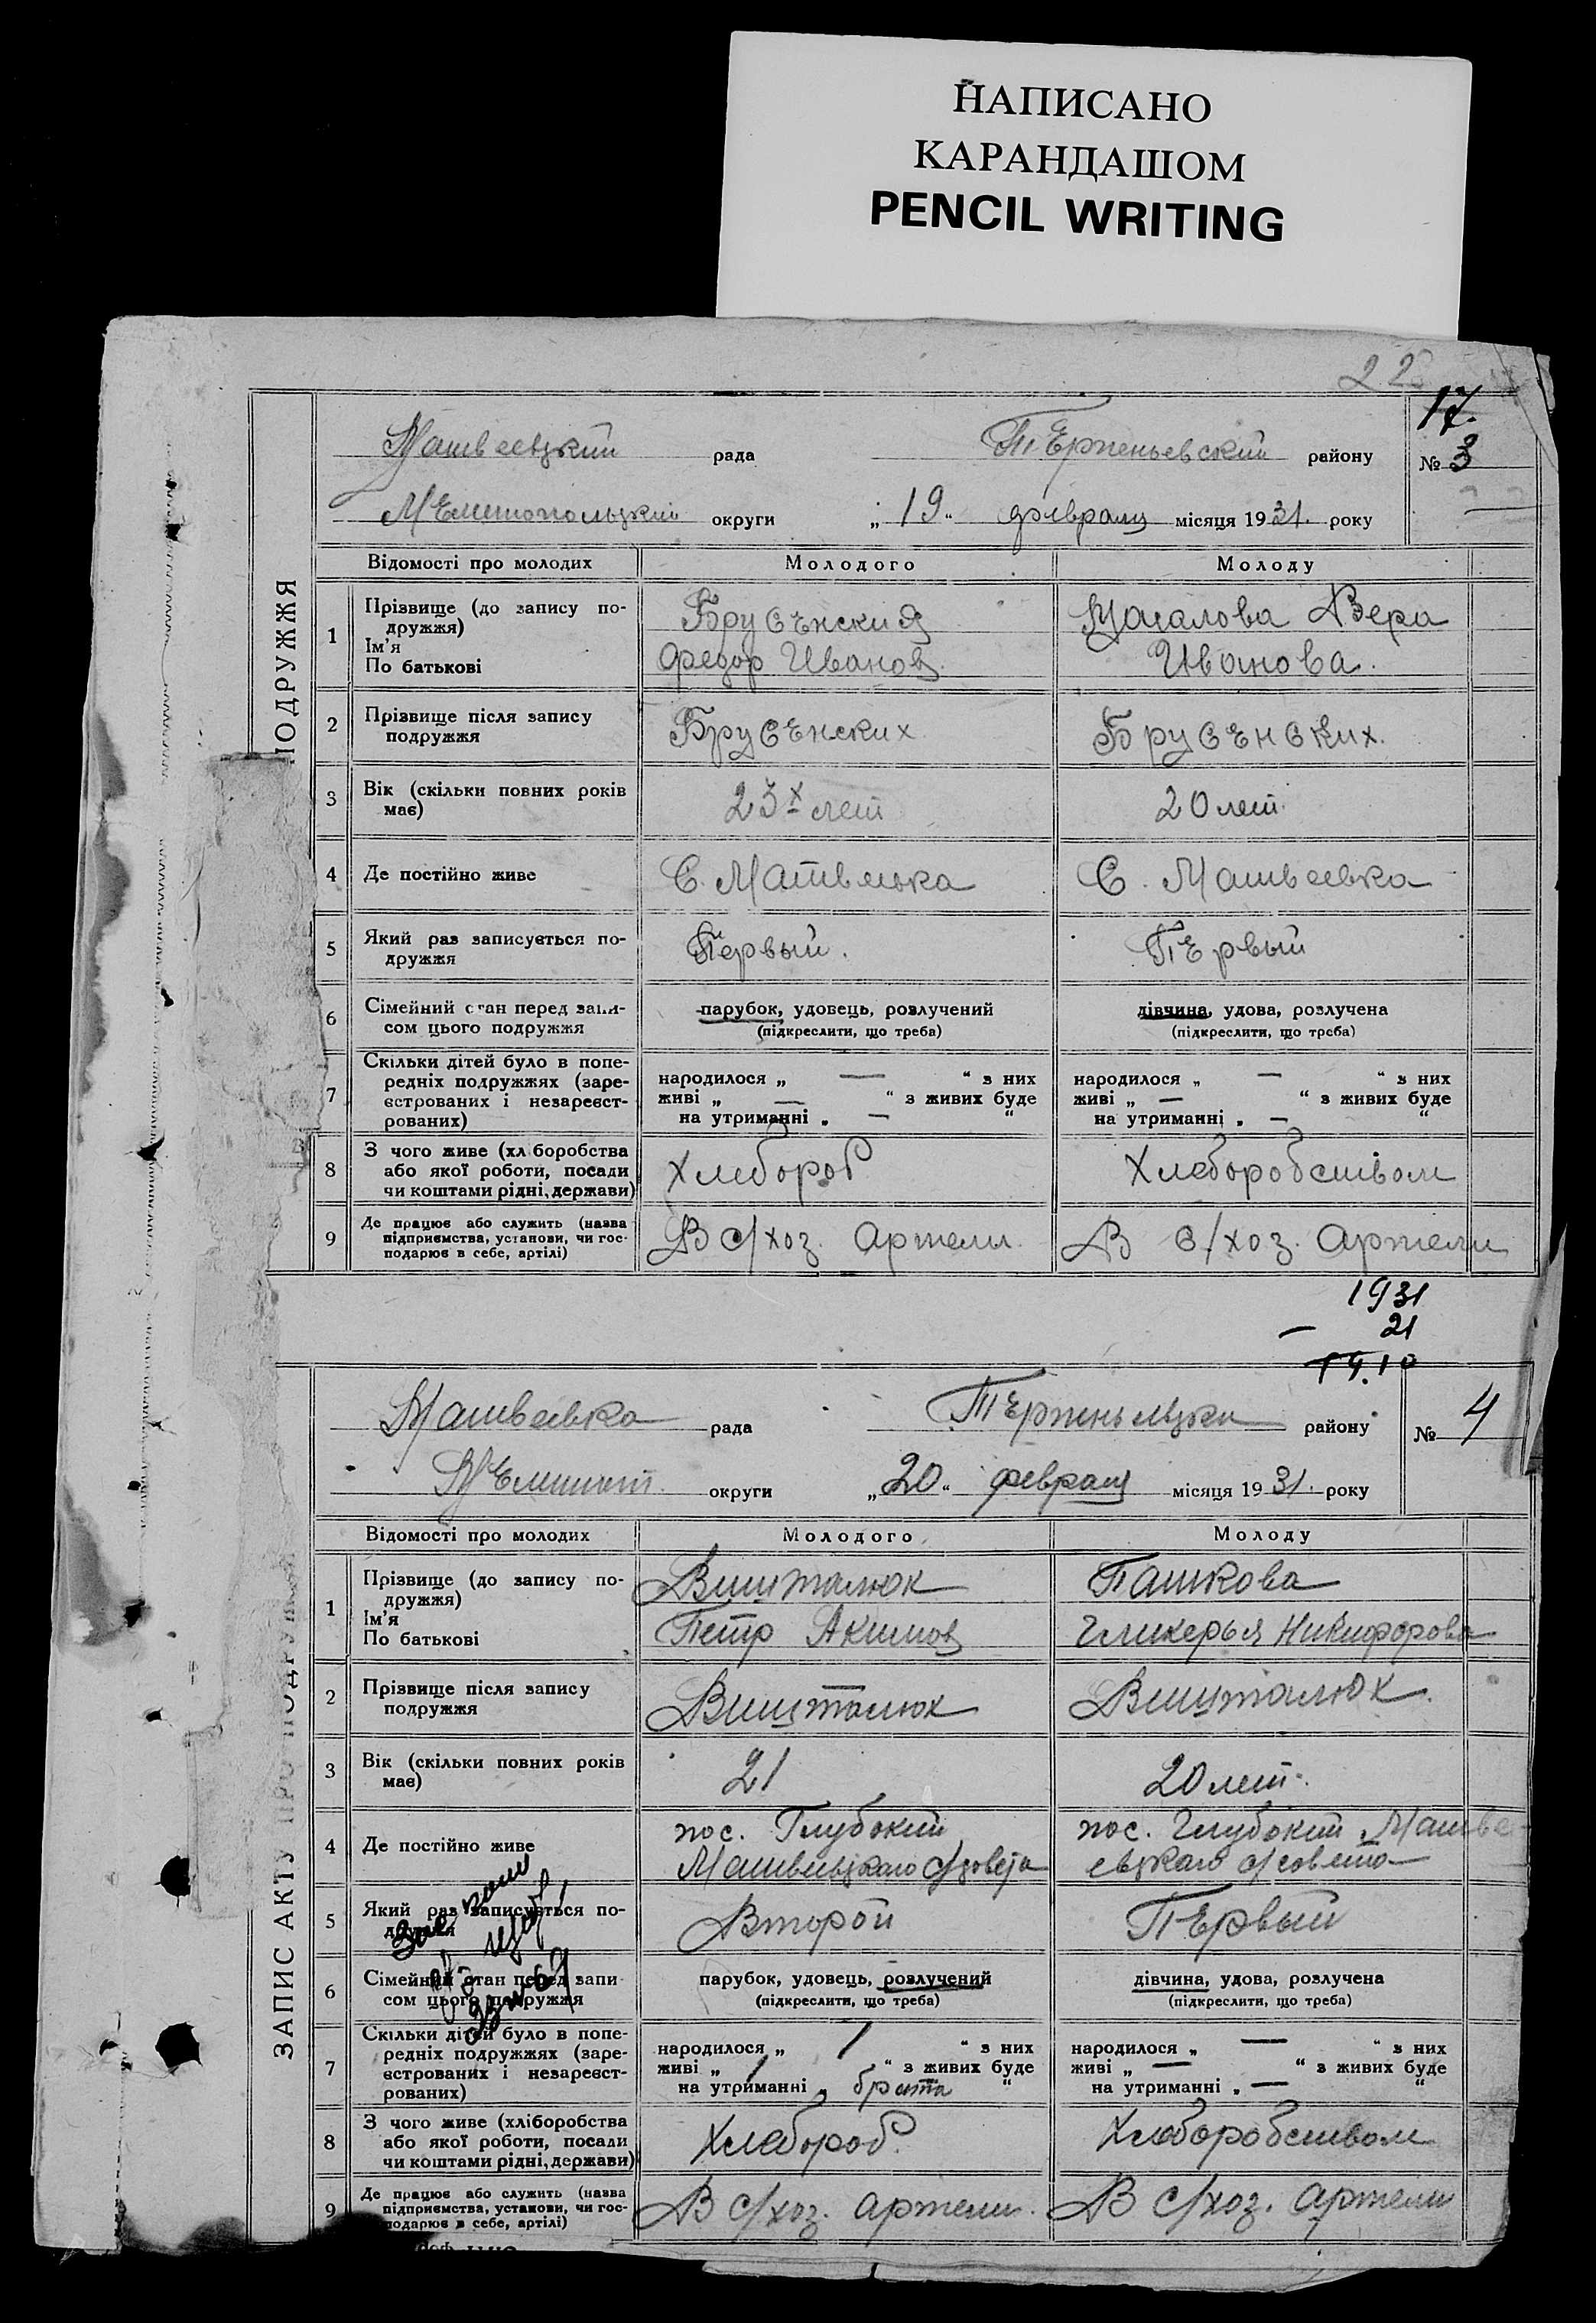 НАПИСАНО
КАРАНДАШОМ
PENCIL WRITING
22
17.
Матвеевский рада Терпеньевский району № 3
Мелитопольский округи „19“ февраля місяця 1931. року
ПОДРУЖЖЯ
Відомості про молодих Молодого Молоду
1 Прізвище (до запису подружжя) Ім'я По батькові
Брусенский
Федор Иванов.
Вера
Иванова.
2 Прізвище після запису подружжя Брусенских Брусенских.
3 Вік (скільки повних років має) 23х лет 20 лет.
4 Де постійно живе С. Матвеевка С. Матвеевка
5 Який раз записується подружжя Первый. Первый
6 Сімейний стан перед записом цього подружжя
парубок, удовець, розлучений дівчина, удова, розлучена
(підкреслити, що треба) (підкреслити, що треба)
7 Скільки дітей було в попередніх подружжях (зареєстрованих і незареєстрованих)
народилося „ — “ з них народилося „ — “ з них
живі „ — “ з живих буде живі „ — “ з живих буде
на утриманні „ — “ на утриманні „ — “
8 З чого живе (хл боробства або якої роботи, посади чи коштами рідні, держави) Хлебороб Хлеборобством
9 Де працює або служить (назва підприємства, установи, чи господарює в себе, артілі) В с/хоз. Артели В с/хоз. Артели
1931
— 21
1910
Матвеевка рада району № 4
Мелитоп. округи „20“ февраля місяця 1931. року
ЗАПИС АКТУ ПРО ПОДРУЖЖЯ
Відомості про молодих Молодого Молоду
1 Прізвище (до запису подружжя) Ім'я По батькові
Вишталюк Пашкова
Петр Акимов Гликерья Никифорова
2 Прізвище після запису подружжя Вишталюк Вишталюк.
3 Вік (скільки повних років має) 21 20 лет.
4 Де постійно живе
пос. Глубокий пос. Глубокий Матве-
Матвеевского с/совета евского с/совета
5 Який раз записується подружжя Второй Первый
6 Сімейний стан перед записом цього подружжя
парубок, удовець, розлучений дівчина, удова, розлучена
(підкреслити, що треба) (підкреслити, що треба)
7 Скільки дітей було в попередніх подружжях (зареєстрованих і незареєстрованих)
народилося „ 1 “ з них народилося „ — “ з них
живі „ 1 “ з живих буде живі „ — “ з живих буде
на утриманні „ брата “ на утриманні „ — “
8 З чого живе (хліборобства або якої роботи, посади чи коштами рідні, держави) Хлебороб. Хлеборобством
9 Де працює або служить (назва підприємства, установи, чи господарює в себе, артілі) В с/хоз. артели. В с/хоз. артели